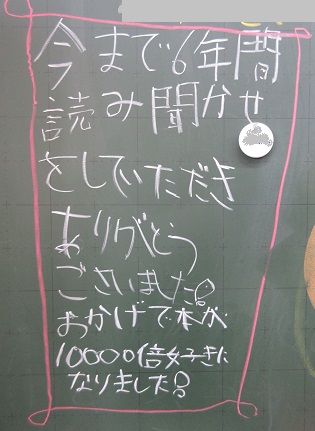 今まで6年間
読み聞かせ
をしていただき
ありがとう
ございました!
おかげで本が
10000倍好きに
なりました!